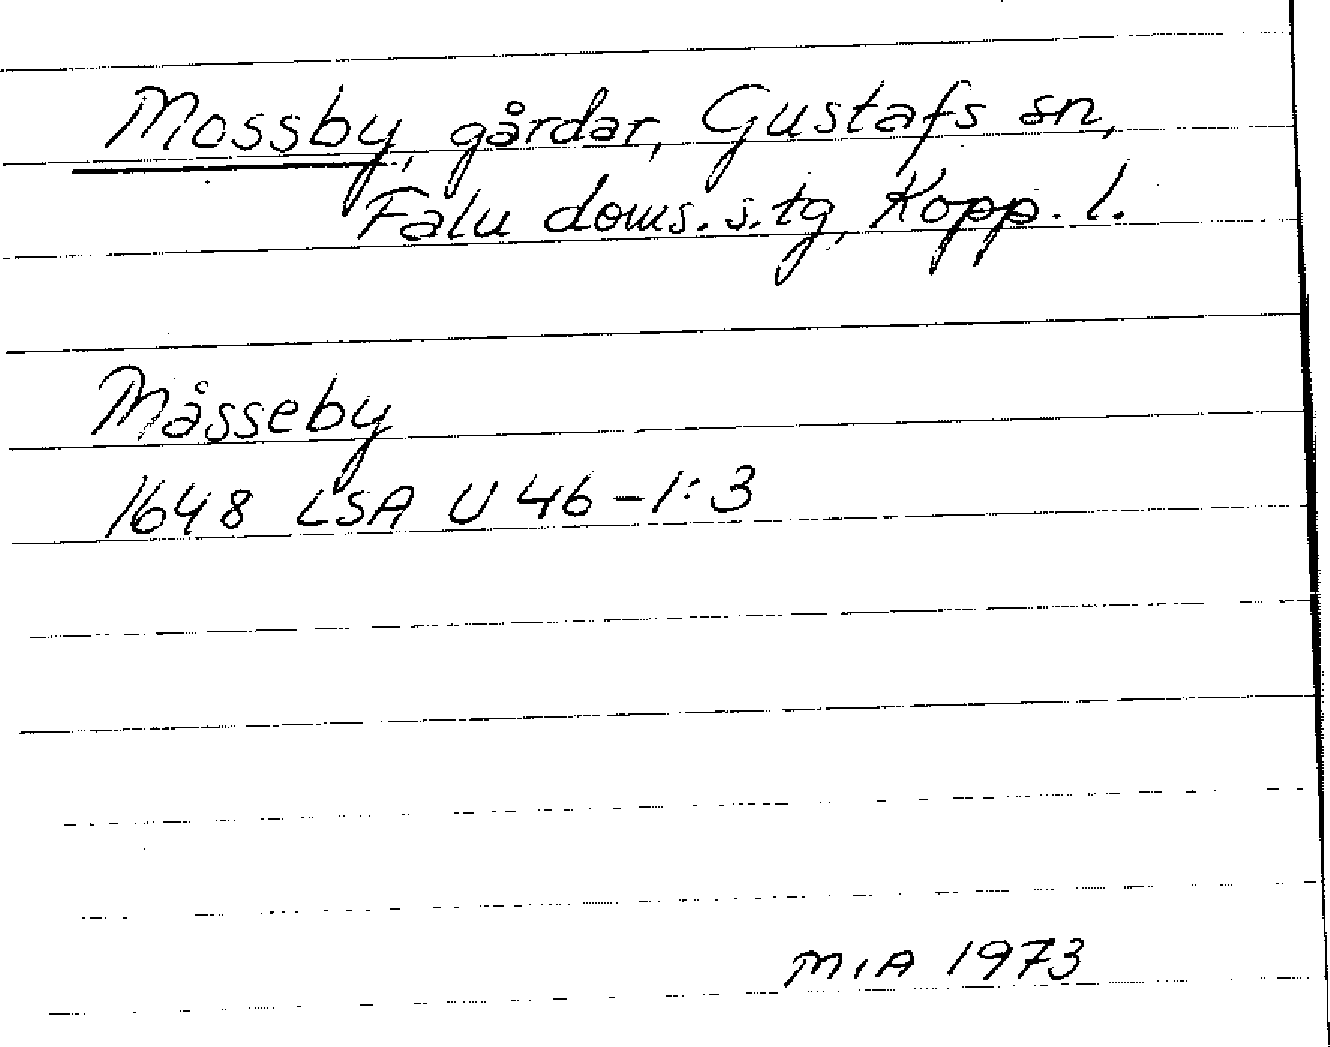 Mossby, gårdar, Gustafs sn,
Falu doms.s.tg, Kopp. l.
Måsseby
1648 LSA U 46-1:3
MIA 1973